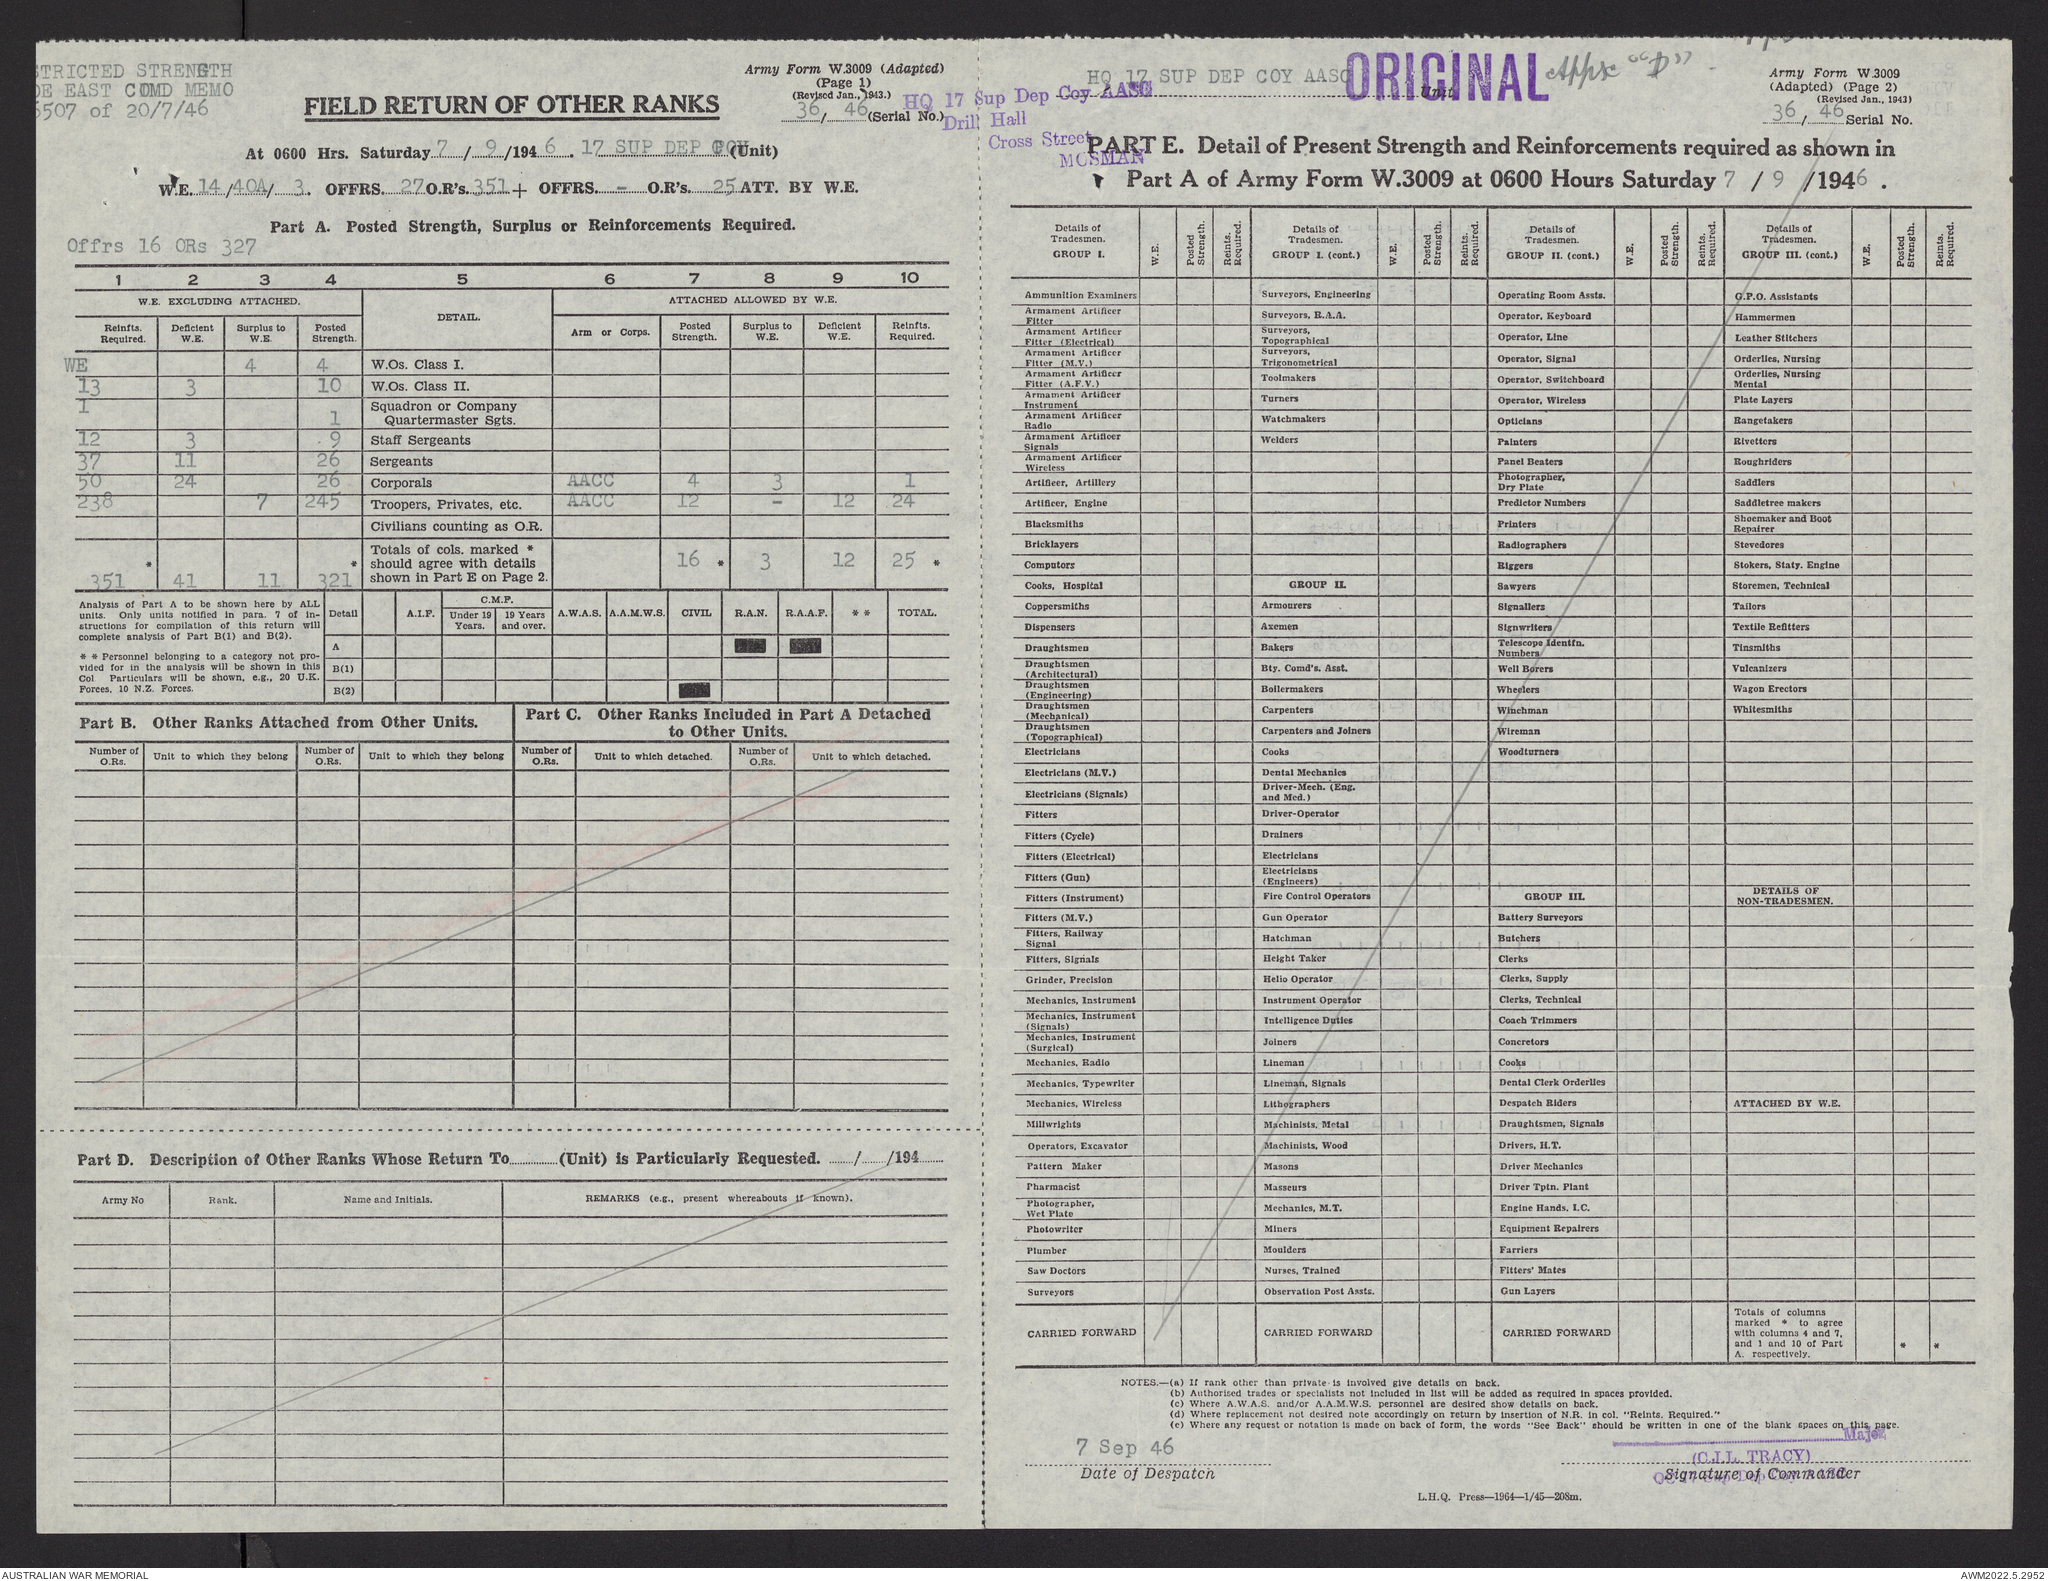 STRICTED STRENGTH
DE EAST COMD MEMO
5507 of 20/7/46
Army Form W.3009 (Adapted)
(Page 1)
(Revised Jan., 1943.)
36 / 46 (Serial No.)
FIELD RETURN OF OTHER RANKS
At 0600 Hrs. Saturday 7 / 9 /194 6 . 17 SUP DEP COY (Unit)
W.E. 14/40A/ 3. OFFRS. 27 O.R's. 351 + OFFRS. - O.R's. 25 ATT. BY W.E.
Part A. Posted Strength, Surplus or Reinforcements Required.
Offrs 16 ORs 327
1 2 3 4 5 6 7 8 9 10
W.E. EXCLUDING ATTACHED. DETAIL. ATTACHED ALLOWED BY W.E.
Reinfts. Required. Deficient W.E. Surplus to W.E. Posted Strength. Arm or Corps. Posted Strength. Surplus to W.E. Deficient W.E. Reinfts. Required.
WE 4 4 W.Os. Class I.
13 3 10 W.Os. Class II.
1 1 Squadron or Company Quartermaster Sgts.
12 3 9 Staff Sergeants
37 11 26 Sergeants
50 24 26 Corporals AACC 4 3 1
238 7 245 Troopers, Privates, etc. AACC 12 - 12 24
Civilians counting as O.R.
* 351 41 11 * 321 Totals of cols. marked * should agree with details shown in Part E on Page 2. 16 * 3 12 25 *
Analysis of Part A to be shown here by ALL units. Only units notified in para. 7 of instructions for compilation of this return will complete analysis of Part B(1) and B(2).
* * Personnel belonging to a category not provided for in the analysis will be shown in this Col. Particulars will be shown, e.g., 20 U.K. Forces, 10 N.Z. Forces.
Detail A.I.F. C.M.F. Under 19 Years. 19 Years and over. A.W.A.S. A.A.M.W.S. CIVIL R.A.N. R.A.A.F. * * TOTAL.
A
B(1)
B(2)
Part B. Other Ranks Attached from Other Units.
Part C. Other Ranks Included in Part A Detached to Other Units.
Number of O.Rs. Unit to which they belong Number of O.Rs. Unit to which they belong Number of O.Rs. Unit to which detached. Number of O.Rs. Unit to which detached.
Part D. Description of Other Ranks Whose Return To (Unit) is Particularly Requested. / /194
Army No Rank. Name and Initials. REMARKS (e.g., present whereabouts if known).
HQ 17 SUP DEP COY AASC Unit
ORIGINAL
Appx "D"
HQ 17 Sup Dep Coy AASC
Drill Hall
Cross Street
MOSMAN
Army Form W.3009
(Adapted) (Page 2)
(Revised Jan., 1943)
36 / 46 Serial No.
PART E. Detail of Present Strength and Reinforcements required as shown in
Part A of Army Form W.3009 at 0600 Hours Saturday 7 / 9 /1946 .
Details of Tradesmen. GROUP I. W.E. Posted Strength. Reints. Required.
Ammunition Examiners
Armament Artificer Fitter
Armament Artificer Fitter (Electrical)
Armament Artificer Fitter (M.V.)
Armament Artificer Fitter (A.F.V.)
Armament Artificer Instrument
Armament Artificer Radio
Armament Artificer Signals
Armament Artificer Wireless
Artificer, Artillery
Artificer, Engine
Blacksmiths
Bricklayers
Computors
Cooks, Hospital
Coppersmiths
Dispensers
Draughtsmen
Draughtsmen (Architectural)
Draughtsmen (Engineering)
Draughtsmen (Mechanical)
Draughtsmen (Topographical)
Electricians
Electricians (M.V.)
Electricians (Signals)
Fitters
Fitters (Cycle)
Fitters (Electrical)
Fitters (Gun)
Fitters (Instrument)
Fitters (M.V.)
Fitters, Railway Signal
Fitters, Signals
Grinder, Precision
Mechanics, Instrument
Mechanics, Instrument (Signals)
Mechanics, Instrument (Surgical)
Mechanics, Radio
Mechanics, Typewriter
Mechanics, Wireless
Millwrights
Operators, Excavator
Pattern Maker
Pharmacist
Photographer, Wet Plate
Photowriter
Plumber
Saw Doctors
Surveyors
CARRIED FORWARD
Details of Tradesmen. GROUP I. (cont.) W.E. Posted Strength. Reints. Required.
Surveyors, Engineering
Surveyors, R.A.A.
Surveyors, Topographical
Surveyors, Trigonometrical
Toolmakers
Turners
Watchmakers
Welders
GROUP II.
Armourers
Axemen
Bakers
Bty. Comd's. Asst.
Boilermakers
Carpenters
Carpenters and Joiners
Cooks
Dental Mechanics
Driver-Mech. (Eng. and Med.)
Driver-Operator
Drainers
Electricians
Electricians (Engineers)
Fire Control Operators
Gun Operator
Hatchman
Height Taker
Helio Operator
Instrument Operator
Intelligence Duties
Joiners
Lineman
Lineman, Signals
Lithographers
Machinists, Metal
Machinists, Wood
Masons
Masseurs
Mechanics, M.T.
Miners
Moulders
Nurses, Trained
Observation Post Assts.
CARRIED FORWARD
Details of Tradesmen. GROUP II. (cont.) W.E. Posted Strength. Reints. Required.
Operating Room Assts.
Operator, Keyboard
Operator, Line
Operator, Signal
Operator, Switchboard
Operator, Wireless
Opticians
Painters
Panel Beaters
Photographer, Dry Plate
Predictor Numbers
Printers
Radiographers
Riggers
Sawyers
Signallers
Signwriters
Telescope Identfn. Numbers
Well Borers
Wheelers
Winchman
Wireman
Woodturners
GROUP III.
Battery Surveyors
Butchers
Clerks
Clerks, Supply
Clerks, Technical
Coach Trimmers
Concretors
Cooks
Dental Clerk Orderlies
Despatch Riders
Draughtsmen, Signals
Drivers, H.T.
Driver Mechanics
Driver Tptn. Plant
Engine Hands, I.C.
Equipment Repairers
Farriers
Fitters' Mates
Gun Layers
CARRIED FORWARD
Details of Tradesmen. GROUP III. (cont.) W.E. Posted Strength. Reints. Required.
G.P.O. Assistants
Hammermen
Leather Stitchers
Orderlies, Nursing
Orderlies, Nursing Mental
Plate Layers
Rangetakers
Rivetters
Roughriders
Saddlers
Saddletree makers
Shoemaker and Boot Repairer
Stevedores
Stokers, Staty. Engine
Storemen, Technical
Tailors
Textile Refitters
Tinsmiths
Vulcanizers
Wagon Erectors
Whitesmiths
DETAILS OF NON-TRADESMEN.
ATTACHED BY W.E.
Totals of columns marked * to agree with columns 4 and 7, and 1 and 10 of Part A. respectively. * *
NOTES.—(a) If rank other than private is involved give details on back.
(b) Authorised trades or specialists not included in list will be added as required in spaces provided.
(c) Where A.W.A.S. and/or A.A.M.W.S. personnel are desired show details on back.
(d) Where replacement not desired note accordingly on return by insertion of N.R. in col. "Reints. Required."
(e) Where any request or notation is made on back of form, the words "See Back" should be written in one of the blank spaces on this page.
7 Sep 46
Date of Despatch
Major
(C.J.L. TRACY)
Signature of Commander
L.H.Q. Press—1964—1/45—208m.
AUSTRALIAN WAR MEMORIAL
AWM2022.5.2952